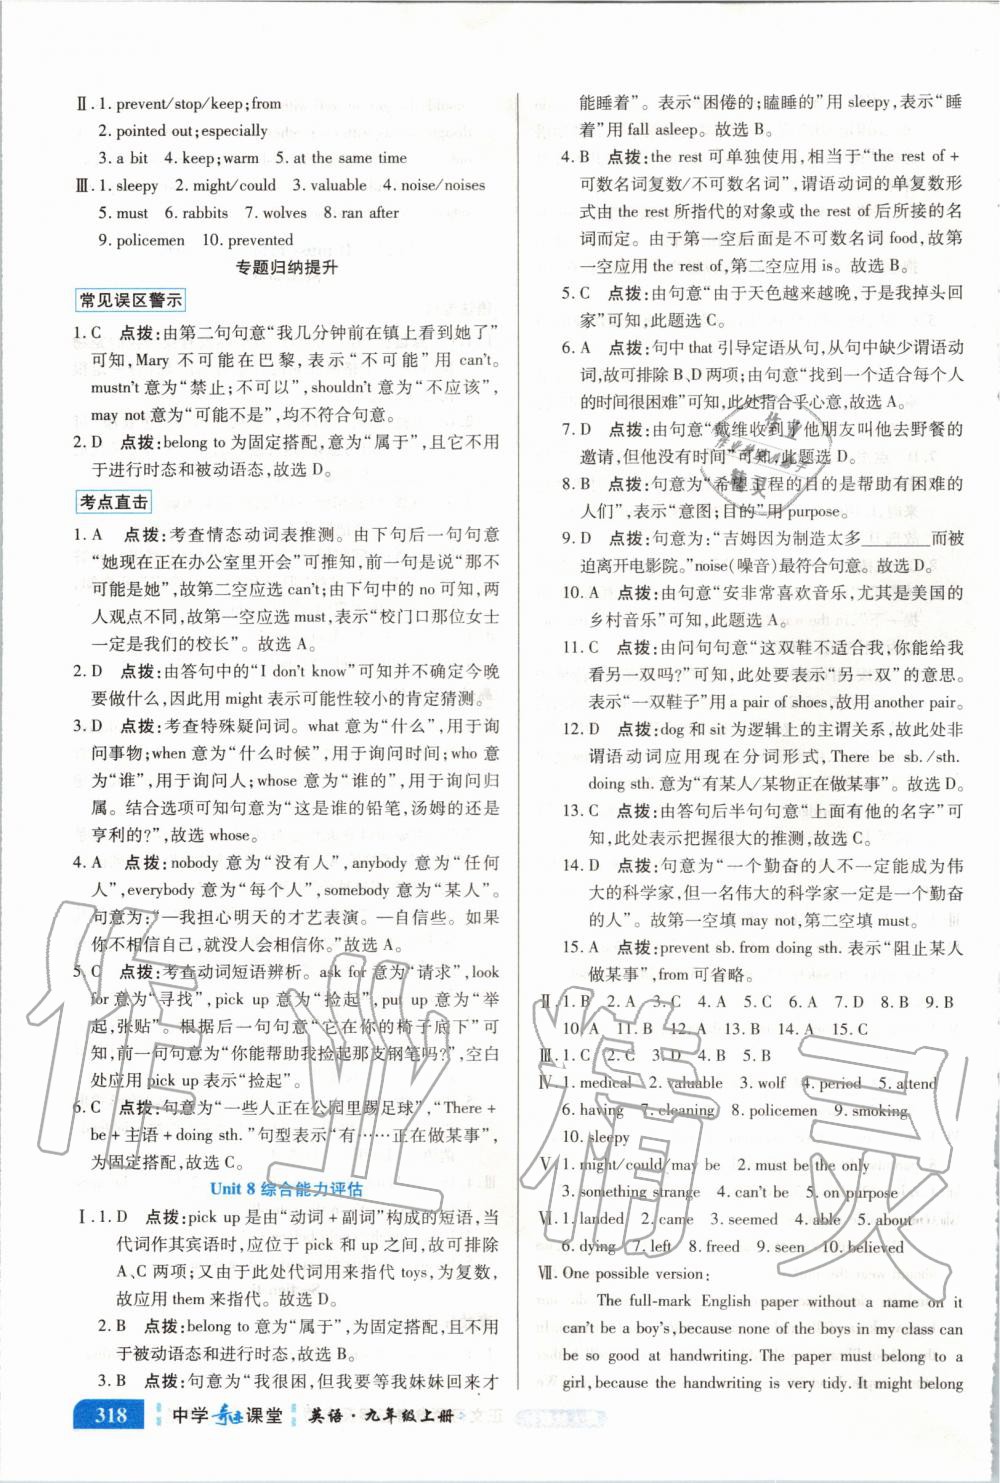 Ⅱ. 1. prevent/stop/keep;from
2. pointed out;especially
3. a bit 4. keep;warm 5. at the same time
Ⅲ. 1. sleepy 2. might/could 3. valuable 4. noise/noises
5. must 6. rabbits 7. wolves 8. ran after
9. policemen 10. prevented
专题归纳提升
常见误区警示
1. C 点拨:由第二句句意“我几分钟前在镇上看到她了”
可知, Mary 不可能在巴黎, 表示“不可能”用 can't。
mustn't 意为“禁止;不可以”, shouldn't 意为“不应该”,
may not 意为“可能不是”,均不符合句意。
2. D 点拨:belong to 为固定搭配,意为“属于”,且它不用
于进行时态和被动语态,故选 D。
考点直击
1. A 点拨:考查情态动词表推测。由下句后一句句意
“她现在正在办公室里开会”可推知,前一句是说“不
可能是她”,故第二空应选 can't;由下句中的 no,两
人观点不同,故第一空应选 must,表示“校门口那位女士
一定是我们的校长”。故选 A。
2. D 点拨:由答句中的“I don't know”可知并不确定今晚
要做什么,因此用 might 表示可能性较小的肯定猜测。
3. D 点拨:考查特殊疑问词。what 意为“什么”,用于询
问事物;when 意为“什么时候”,用于询问时间;who 意
为“谁”,用于询问人;whose 意为“谁的”,用于询问归
属。结合选项可知句意为“这是谁的铅笔,汤姆的还是
亨利的?”,故选 whose。
4. A 点拨:nobody 意为“没有人”,anybody 意为“任何
人”,everybody 意为“每个人”,somebody 意为“某人”。
句意为:“—我担心明天的才艺表演。—当然。如果
你不相信自己,就没人会相信你。”故选 A。
5. C 点拨:考查动词短语辨析。ask for 意为“请求”,look
for 意为“寻找”,pick up 意为“捡起”,put up 意为“举
起,张贴”。根据后一句句意“它在你的椅子底下”可
知,前一句句意为“你能帮助我捡起那支钢笔吗?”,空白
处应用 pick up 表示“捡起”。
6. C 点拨:句意为“一些人正在公园里踢足球”,“There +
be + 主语 + doing sth.”句型表示“有……正在做某事”,
为固定搭配,故选 C。
Unit 8 综合能力评估
Ⅰ. 1. D 点拨:pick up 是由“动词 + 副词”构成的短语,当
代词作其宾语时,应位于 pick 和 up 之间,故可排除
A、C 两项;又由于此处代词用来指代 toys,为复数,
故应用 them 来指代。故选 D。
2. B 点拨:belong to 意为“属于”,为固定搭配,不用于
被动语态和进行时态,故选 B。
3. B 点拨:句意为“我很困,但我给我妹妹回来才
能睡着”。表示“困倦的;瞌睡的”用 sleepy,表示“睡
着”用 fall asleep。故选 B。
4. B 点拨:the rest 可单独使用,相当于“the rest of +
可数名词复数/不可数名词”,谓语动词的单复数形
式由 the rest 所指代的对象或 the rest of 后所接的名
词而定。由于第一空后面是不可数名词 food,故第
一空应用 the rest of,第二空应用 is。故选 B。
5. C 点拨:由句意“由于天色越来越晚,于是我掉头回
家”可知,此题选 C。
6. A 点拨:句中 that 引导定语从句,从句中缺少谓语动
词,故可排除 B、D 两项;由句意“找到一个适合每个人
的时间很困难”可知,此处指合乎心意,故选 A。
7. D 点拨:由句意“戴维收到了他朋友叫他去野餐的
邀请,但他没有时间”可知,此题选 D。
8. B 点拨:句意为“希望工程的目的是帮助有困难的
人们”,表示“意图;目的”用 purpose。
9. D 点拨:句意为:“吉姆因为制造太多________而被
迫离开电影院。”noise(噪音)最符合句意。故选 D。
10. A 点拨:由句意“安非常喜欢音乐,尤其是美国的
乡村音乐”可知,此题选 A。
11. C 点拨:由问句句意“这双鞋不适合我,你能给我
看另一双吗?”可知,此处要表示“另一双”的意思。
表示“一双鞋子”用 a pair of shoes,故用 another pair。
12. D 点拨:dog 和 sit 为逻辑上的主谓关系,故此处非
谓语动词应用现在分词形式,There be sb./sth.
doing sth. 意为“有某人/某物正在做某事”。故选 D。
13. C 点拨:由答句后半句句意“上面有他的名字”可
知,此处表示把握很大的推测,故选 C。
14. D 点拨:句意为“一个勤奋的人不一定能成为伟
大的科学家,但一名伟大的科学家一定是一个勤奋
的人”。故第一空填 may not,第二空填 must。
15. A 点拨:prevent sb. from doing sth. 表示“阻止某人
做某事”,from 可省略。
Ⅱ. 1. B 2. A 3. C 4. A 5. C 6. A 7. D 8. B 9. B
10. A 11. B 12. A 13. B 14. A 15. C
Ⅲ. 1. C 2. C 3. D 4. B 5. B
Ⅳ. 1. medical 2. valuable 3. wolf 4. period 5. attend
6. having 7. cleaning 8. policemen 9. smoking
10. sleepy
Ⅴ. 1. might/could must be 2. must be the only
3. something strange 4. can't be 5. on purpose
Ⅵ. 1. landed 2. came 3. seemed 4. able 5. about
6. dying 7. left 8. freed 9. seen 10. believed
Ⅶ. One possible version:
The full-mark English paper without a name on it
can't be a boy's, because none of the boys in my class can
be so good at handwriting. The paper must belong to a
girl, because the handwriting is very tidy. It might belong
318 中学奇迹课堂 英语·九年级上册
作业精灵